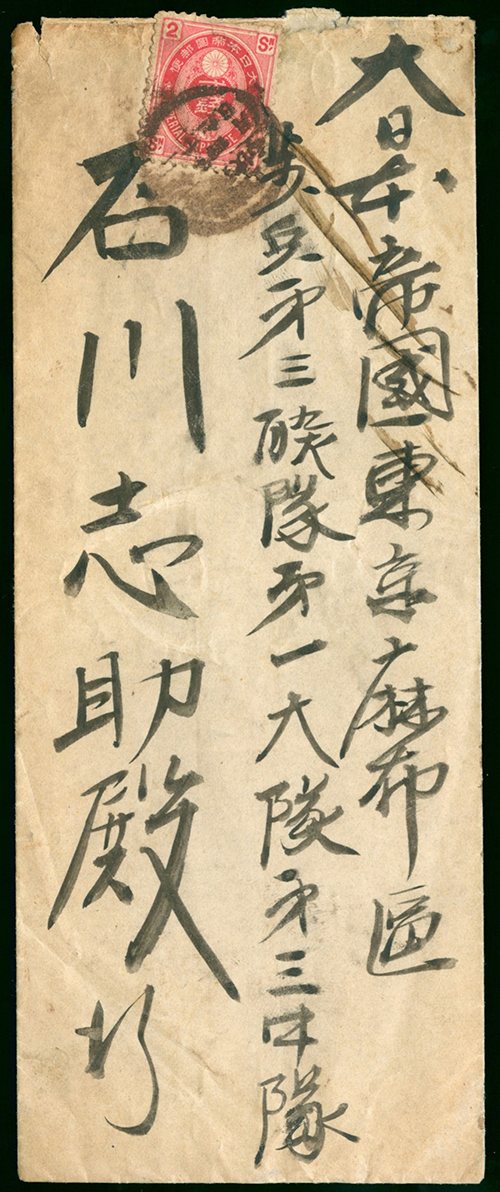 大日本帝國東京麻布區
歩兵第三聯隊第一大隊第三中隊
石川志助殿行
2 Sn
大日本帝國郵便